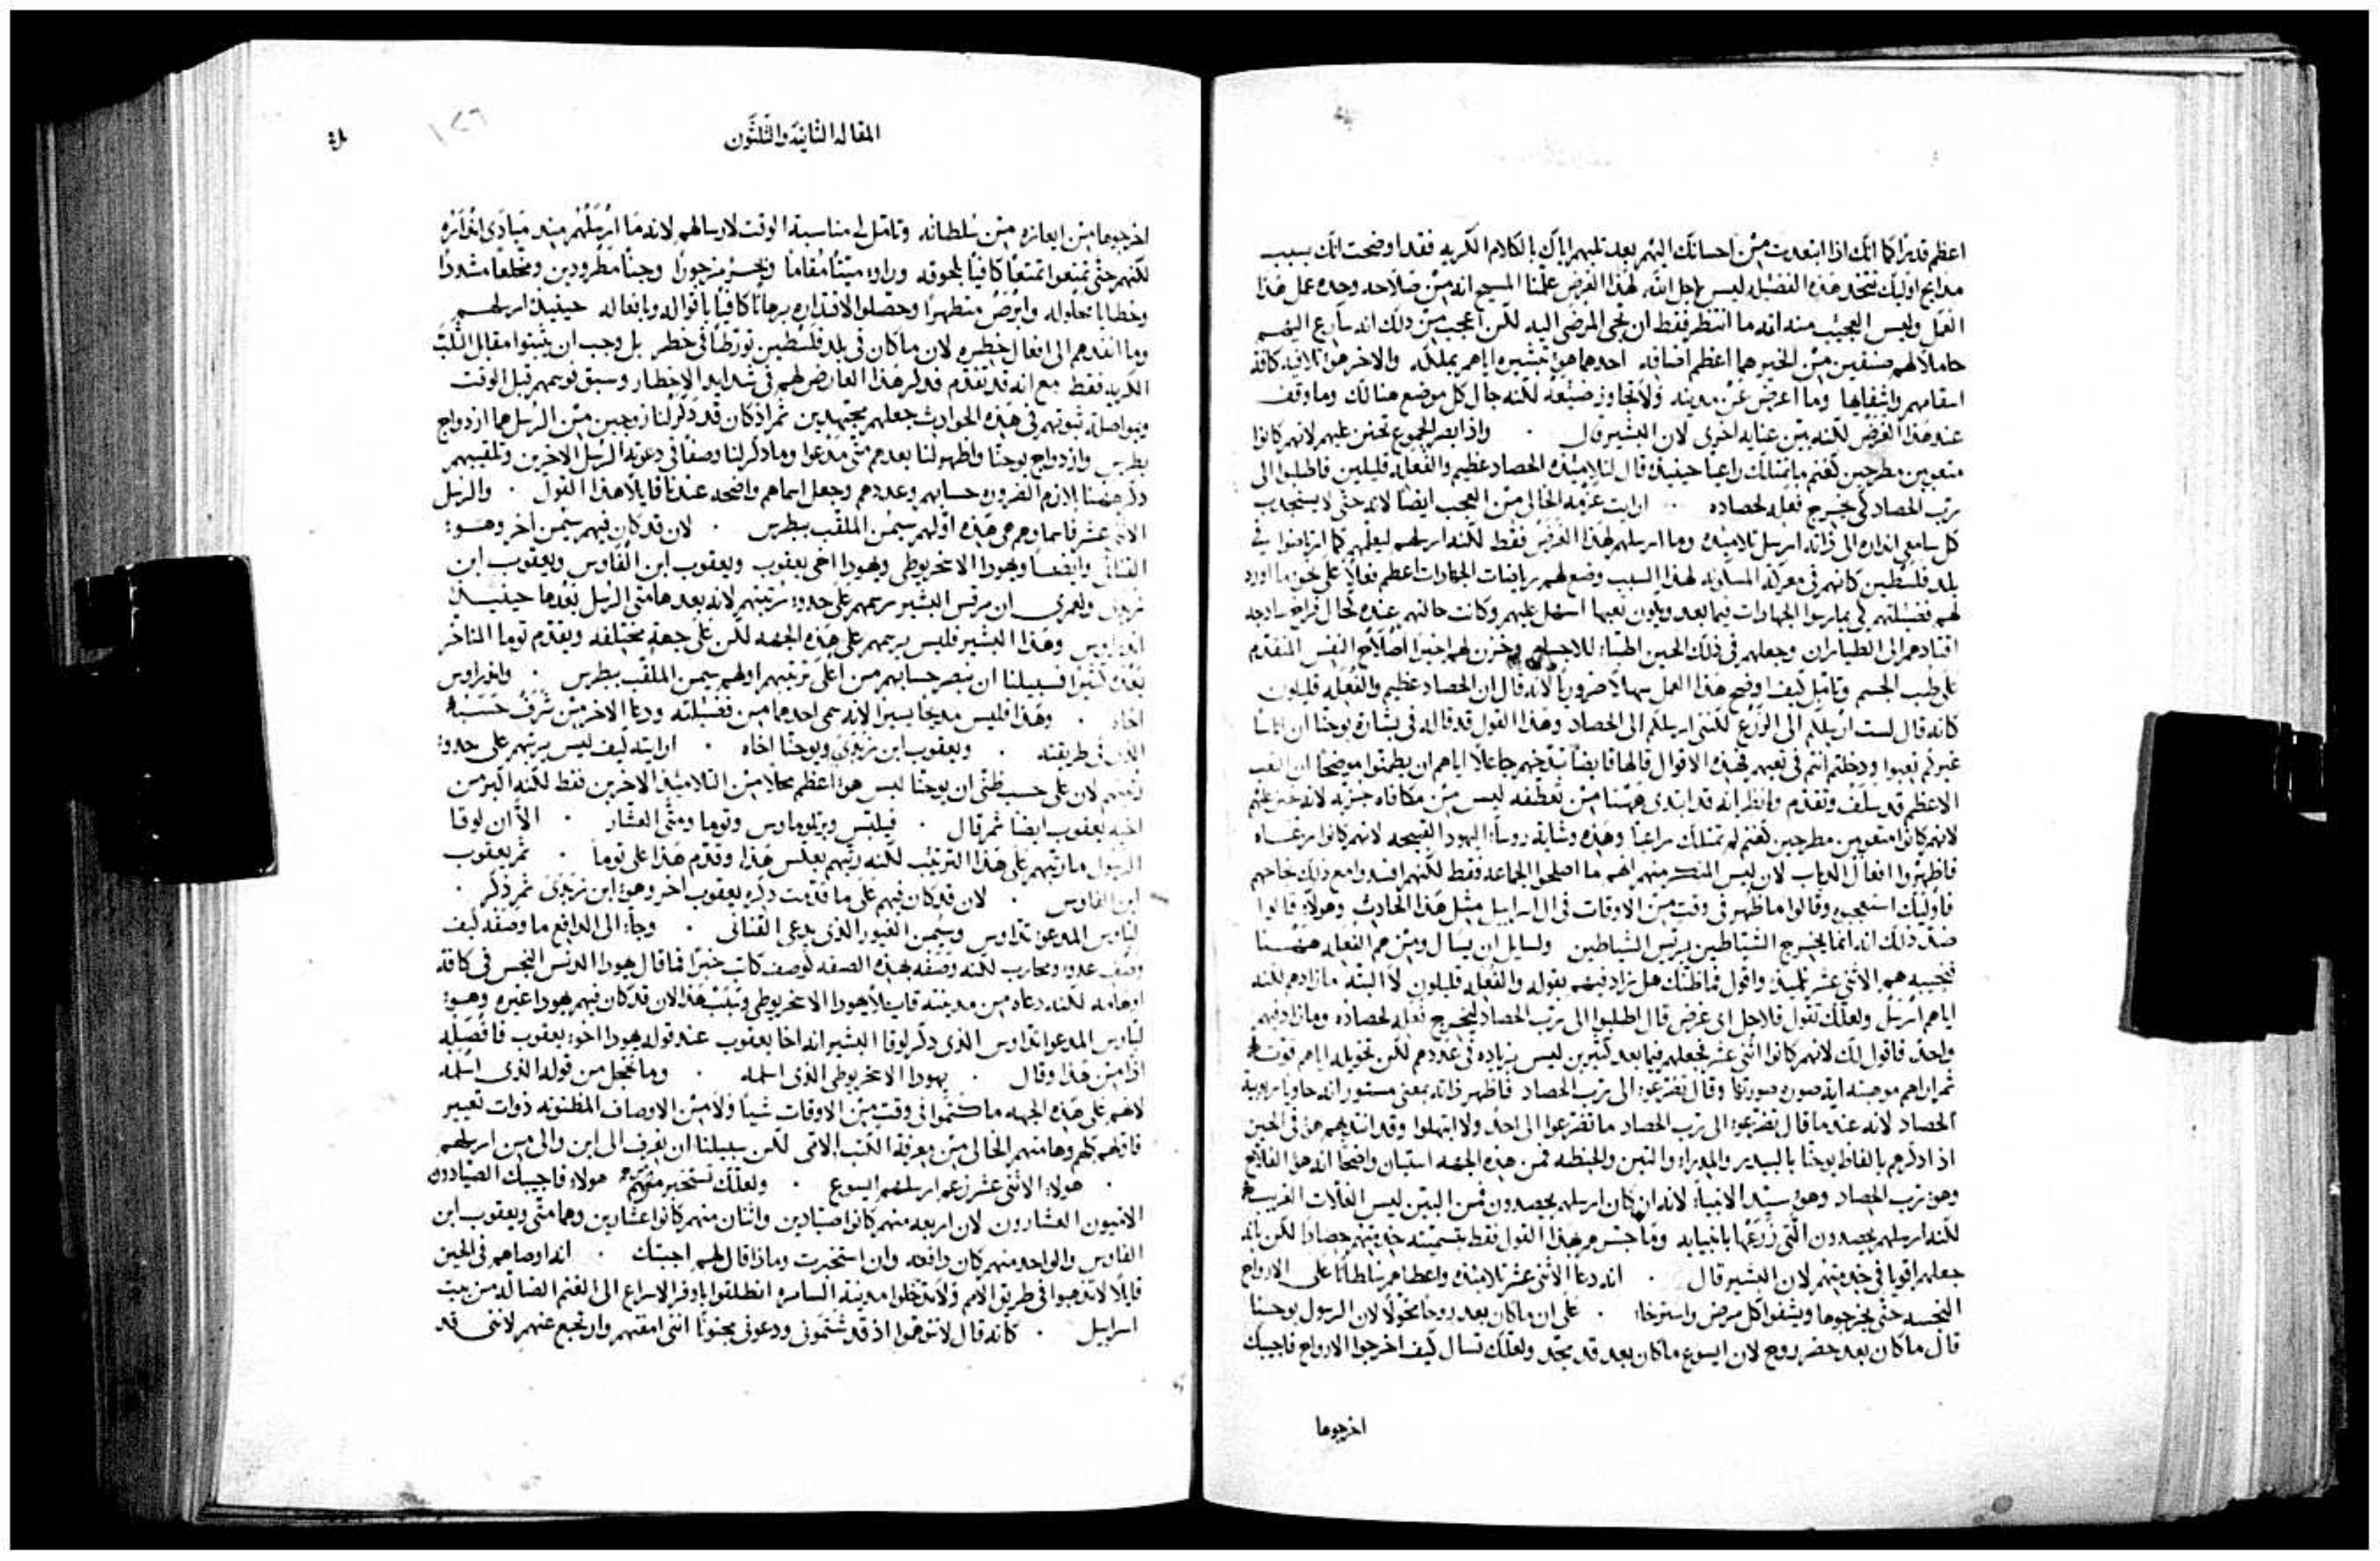 اعظم قدرًا كما انك اذا ابتعدت من احسانك اليهم بعد ثلبهم اياك بالكلام الكريه فقد اوضحت انك بسبب
مدايح اوليك تتخذ هذه الفضيله ليس لاجل الله لهذا الغرض علمنا المسيح انه من صلاحه وحده عمل هذا
العمل وليس العجيب منه انه ما انتظر فقط ان تجي المرضي اليه لكن اعجب من ذلك انه سارع اليهم
حاملًا لهم صنفين من الخير هما اعظم اضافه احدهما هو تبشيره اياهم بملكه والاخر هو تلافيه كافة
اسقامهم واشفاها وما اعرض عن مدينه ولا تجاوز ضيعه لكنه جال كل موضع هنالك وما وقف
عند هذا الغرض لكنه بين عنايه اخري لان البشير قال واذ ابصر الجموع تحنن عليهم لانهم كانوا
متعوبين مطرحين كغنم ما تمتلك راعيا حينيذ قال لتلاميذه الحصاد عظيم والفعله قليلين فاطلبوا الي
رب الحصاد كي يخرج فعله لحصاده ارايت عزمه الخالي من العجب ايضا لانه حتي لا يستجذب
كل سامعي انذاره الي ذاته ارسل تلاميذه وما ارسلهم لهذا الغرض فقط لكنه ارسلهم ليعلمهم كما ارتاضوا في
بلد فلسطين كانهم في معركة المساونه لهذا السبب وضع لهم رياضات الجهادات اعظم فعلًا علي نحو ما اورد
لهم فضيلتهم كي يمارسوا الجهادات فيما بعد ويكون تعبها اسهل عليهم وكانت حالتهم عنده كحال فراخ ساذجه
اقتادهم الي الطيران وجعلهم في ذلك الحين اطباء للاجسام وخزن لهم اخيرًا اصلاح النفس المتقدم
علي طب الجسم وتامل كيف اوضح هذا العمل سهلًا ضروريا لانه قال ان الحصاد عظيم والفعله قليلون
كانه قال لست ارسلكم الي الزرع لكنني ارسلكم الي الحصاد وهذا القول قد قاله في بشارة يوحنا ان اناسا
غيركم تعبوا ودخلتم انتم في تعبهم فهذه الاقوال قالها قابضًا تبذخهم جاعلًا اياهم ان يطمنوا موضحًا ان التعب
الاعظم قد سلف وتقدم وانظر انه قد ابتدي ههنا من تعطفه ليس من مكافاه جزيه لانه تحنن عليهم
لانهم كانوا متعوبين مطرحين كغنم لم تمتلك راعيًا وهذه وشاية روساء اليهود القبيحه لانهم كانوا رعاه
فاظهروا افعال الدياب لان ليس المنكر منهم انهم ما اصلحوا الجماعه فقط لكنهم افسدوا مع ذلك نجاحهم
فاوليك استعجبوه وقالوا ما ظهر في وقت من الاوقات في ال اسراييل مثل هذا الحادث وهولاء قالوا
ضد ذلك انه انما يخرج الشياطين بريس الشياطين ولسايل ان يسال ومن هم الفعله ههنا
فنجيبه هم الاثني عشر تلميذ واقول فما ظنك هل زاد فيهم بقوله والفعله قليلون لا البته ما زادهم لكنه
اياهم ارسل ولعلك تقول فلاجل اي غرض قال اطلبوا الي رب الحصاد ليخرج فعله لحصاده وما زاد فيهم
واحدًا فاقول لك لانهم كانوا اثني عشر فجعلهم فيما بعد كثيرين ليس بزياده في عددهم لكن بتخويله اياهم قوته
ثم اراهم موهبته اية صوره صورتها وقال تضرعوا الي رب الحصاد فاظهر ذاته بمعني مستور انه حاويا ربوبية
الحصاد لانه عندما قال تضرعوا الي رب الحصاد ما تضرعوا الي احد ولا ابتهلوا وقد انتدبهم هو في الحين
اذ اذكرهم بالفاظ يوحنا بالبيدر والمدراه والتبن والحنطه فمن هذه الجهه استبان واضحًا انه هو الفلاح
وهو رب الحصاد وهو سيد الانبياء لانه ان كان ارسلهم يحصدون فمن البين ليس الغلات الغريبه
لكنه ارسلهم يحصدون التي زرعها بانبيايه وما جسرهم بهذا القول فقط بتسميته خدمتهم حصادًا لكن بانه
جعلهم اقويا في خدمتهم لان البشير قال انه دعا الاثني عشر تلاميذه واعطاهم سلطانًا علي الارواح
النجسه حتي يخرجوها ويشفوا كل مرض واسترخاء علي ان ما كان بعد روحا مخولًا لان الرسول يوحنا
قال ما كان بعد حضر روح لان ايسوع ما كان بعد قد مجد ولعلك تسال كيف اخرجوا الارواح فاجيبك
اخرجوها
المقاله الثانيه والثلثون
١٢٦
اخرجوها من ايعازه من سلطانه وتامل لي مناسبة الوقت لارسالهم لانه ما ارسلهم منذ مبادي اتباعهم
لكنهم حتي تمتعوا تمتعًا كافيًا بلحوقه وراوا ميتًا مقامًا وبحرًا مزجورًا وجنًا مطرودين ومخلعًا مشددًا
وخطايا محلوله وابرص متطهرًا وحصلوا لاقتداره برهانًا كافيًا باقواله وبافعاله حينيذ ارسلهم
وما انفذهم الي افعال خطره لان ما كان في بلد فلسطين تورطًا في خطر بل وجب ان يثبتوا مقابل الثلب
الكريه فقط مع انه قد تقدم فذكر هذا العارض لهم في شدايد الاخطار وسبق فوسمهم قبل الوقت
وبمواصلة ثبوتهم في هذه الحوادث جعلهم مجتهدين ثم اذ كان قد ذكر لنا زوجين من الرسل هما ازدواج
بطرس وازدواج يوحنا واظهر لنا بعدهم متي مدعوا وما ذكر لنا وصفًا في دعوة الرسل الاخرين وتلقيبهم
ذكر ههنا بلازم الضروره حسابهم وعددهم وجعل اسماهم واضحه عندنا قايلًا هذا القول والرسل
الاثنا عشر فاسماوهم هي هذه اولهم سيمن الملقب ببطرس لان قد كان فيهم سيمن اخر وهو
القناني وايضًا ويهودا الاسخريوطي ويهودا اخي يعقوب ويعقوب ابن الفاوس ويعقوب ابن
زبدي ولعمري ان مرقس البشير رسمهم علي حدود رتبتهم لانه بعد هامتي الرسل يعدها حينيذ
اندراوس وهذا البشير فليس يرسمهم علي هذه الجهه لكن علي جهة مختلفه ويقدم توما المتاخر
بعده كثيرًا فسبيلنا ان نبصر حسابهم من اعلي ترتيبهم اولهم سيمن الملقب ببطرس واندراوس
اخاه وهذا فليس مديحا يسيرا لانه سمي احدهما من فضيلته ودعا الاخر من شرف حسبه
الذي في طريقته ويعقوب ابن زبدي ويوحنا اخاه ارايته كيف ليس يرتبهم علي حدود
رتبتهم لان علي حسب ظني ان يوحنا ليس هو اعظم محلًا من التلاميذ الاخرين فقط لكنه اكبر من
اخيه يعقوب ايضا ثم قال فيلبس وبرتلوماوس وتوما ومتي العشار الا ان لوقا
الرسول ما رتبهم علي هذا الترتيب لكنه رتبهم بعكس هذا وقدم هذا علي توما ثم يعقوب
ابن الفاوس لان قد كان فيهم علي ما قدمت ذكره يعقوب اخر وهو ابن زبدي ثم ذكر
لباوس المدعو تداوس وسيمن الغيور الذي يدعي القناني وجاء الي الدافع ما وصفه كيف
وصف عدو ومحارب لكنه وصفه بهذه الصفه كوصف كاتب خبرًا فما قال يهودا الدنس النجس في كافة
اوهامه لكنه دعاه من مدينته قايلًا يهودا الاسخريوطي وتلبث هذا لان قد كان فيهم يهودا غيره وهو
لباوس المدعوا تداوس الذي ذكر لوقا البشير انه اخا يعقوب عند قوله يهودا اخو يعقوب فافصله
اذًا من هذا وقال يهودا الاسخريوطي الذي اسلمه وما خجل من قوله الذي اسلمه
لانهم علي هذه الجهه ما كتموا في وقت من الاوقات شيًا ولا من الاوصاف المظنونه ذوات تعيير
فاولهم كلهم وهامتهم الخالي من معرفة الكتب الامي لكن سبيلنا ان نعرف الي اين والي من ارسلهم
هولاء الاثني عشر زعم ارسلهم ايسوع ولعلك تستخبر من هم هولاء فاجيبك الصيادون
الاميون العشارون لان اربعه منهم كانوا صيادين واثنان منهم كانوا عشارين وهما متي ويعقوب ابن
الفاوس والواحد منهم كان دافعه وان استخبرت وماذا قال لهم اجبتك انه اوصاهم في الحين
قايلًا لا تذهبوا في طريق الامم ولا تدخلوا مدينة السامره انطلقوا باوفر الاسراع الي الغنم الضاله من بيت
اسراييل كانه قال لا تتوهموا اذ قد شتموني ودعوني مجنونًا انني امقتهم وارتجع عنهم لانني قد